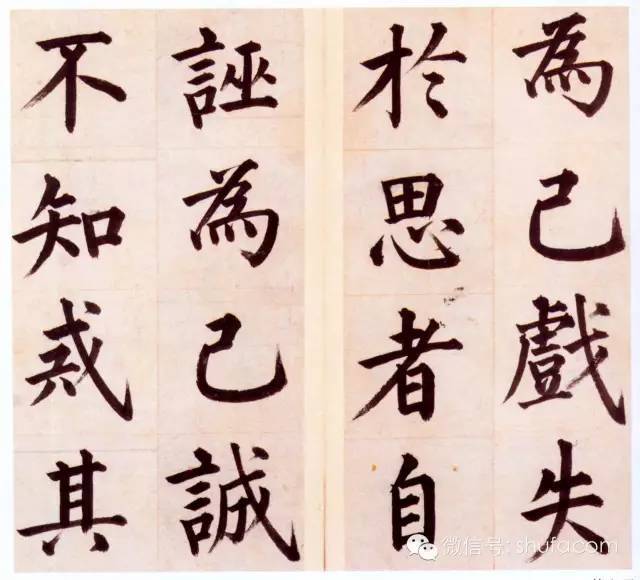 為己戲失
於思者自
誣為己誠
不知戒其
微信号: shufacom